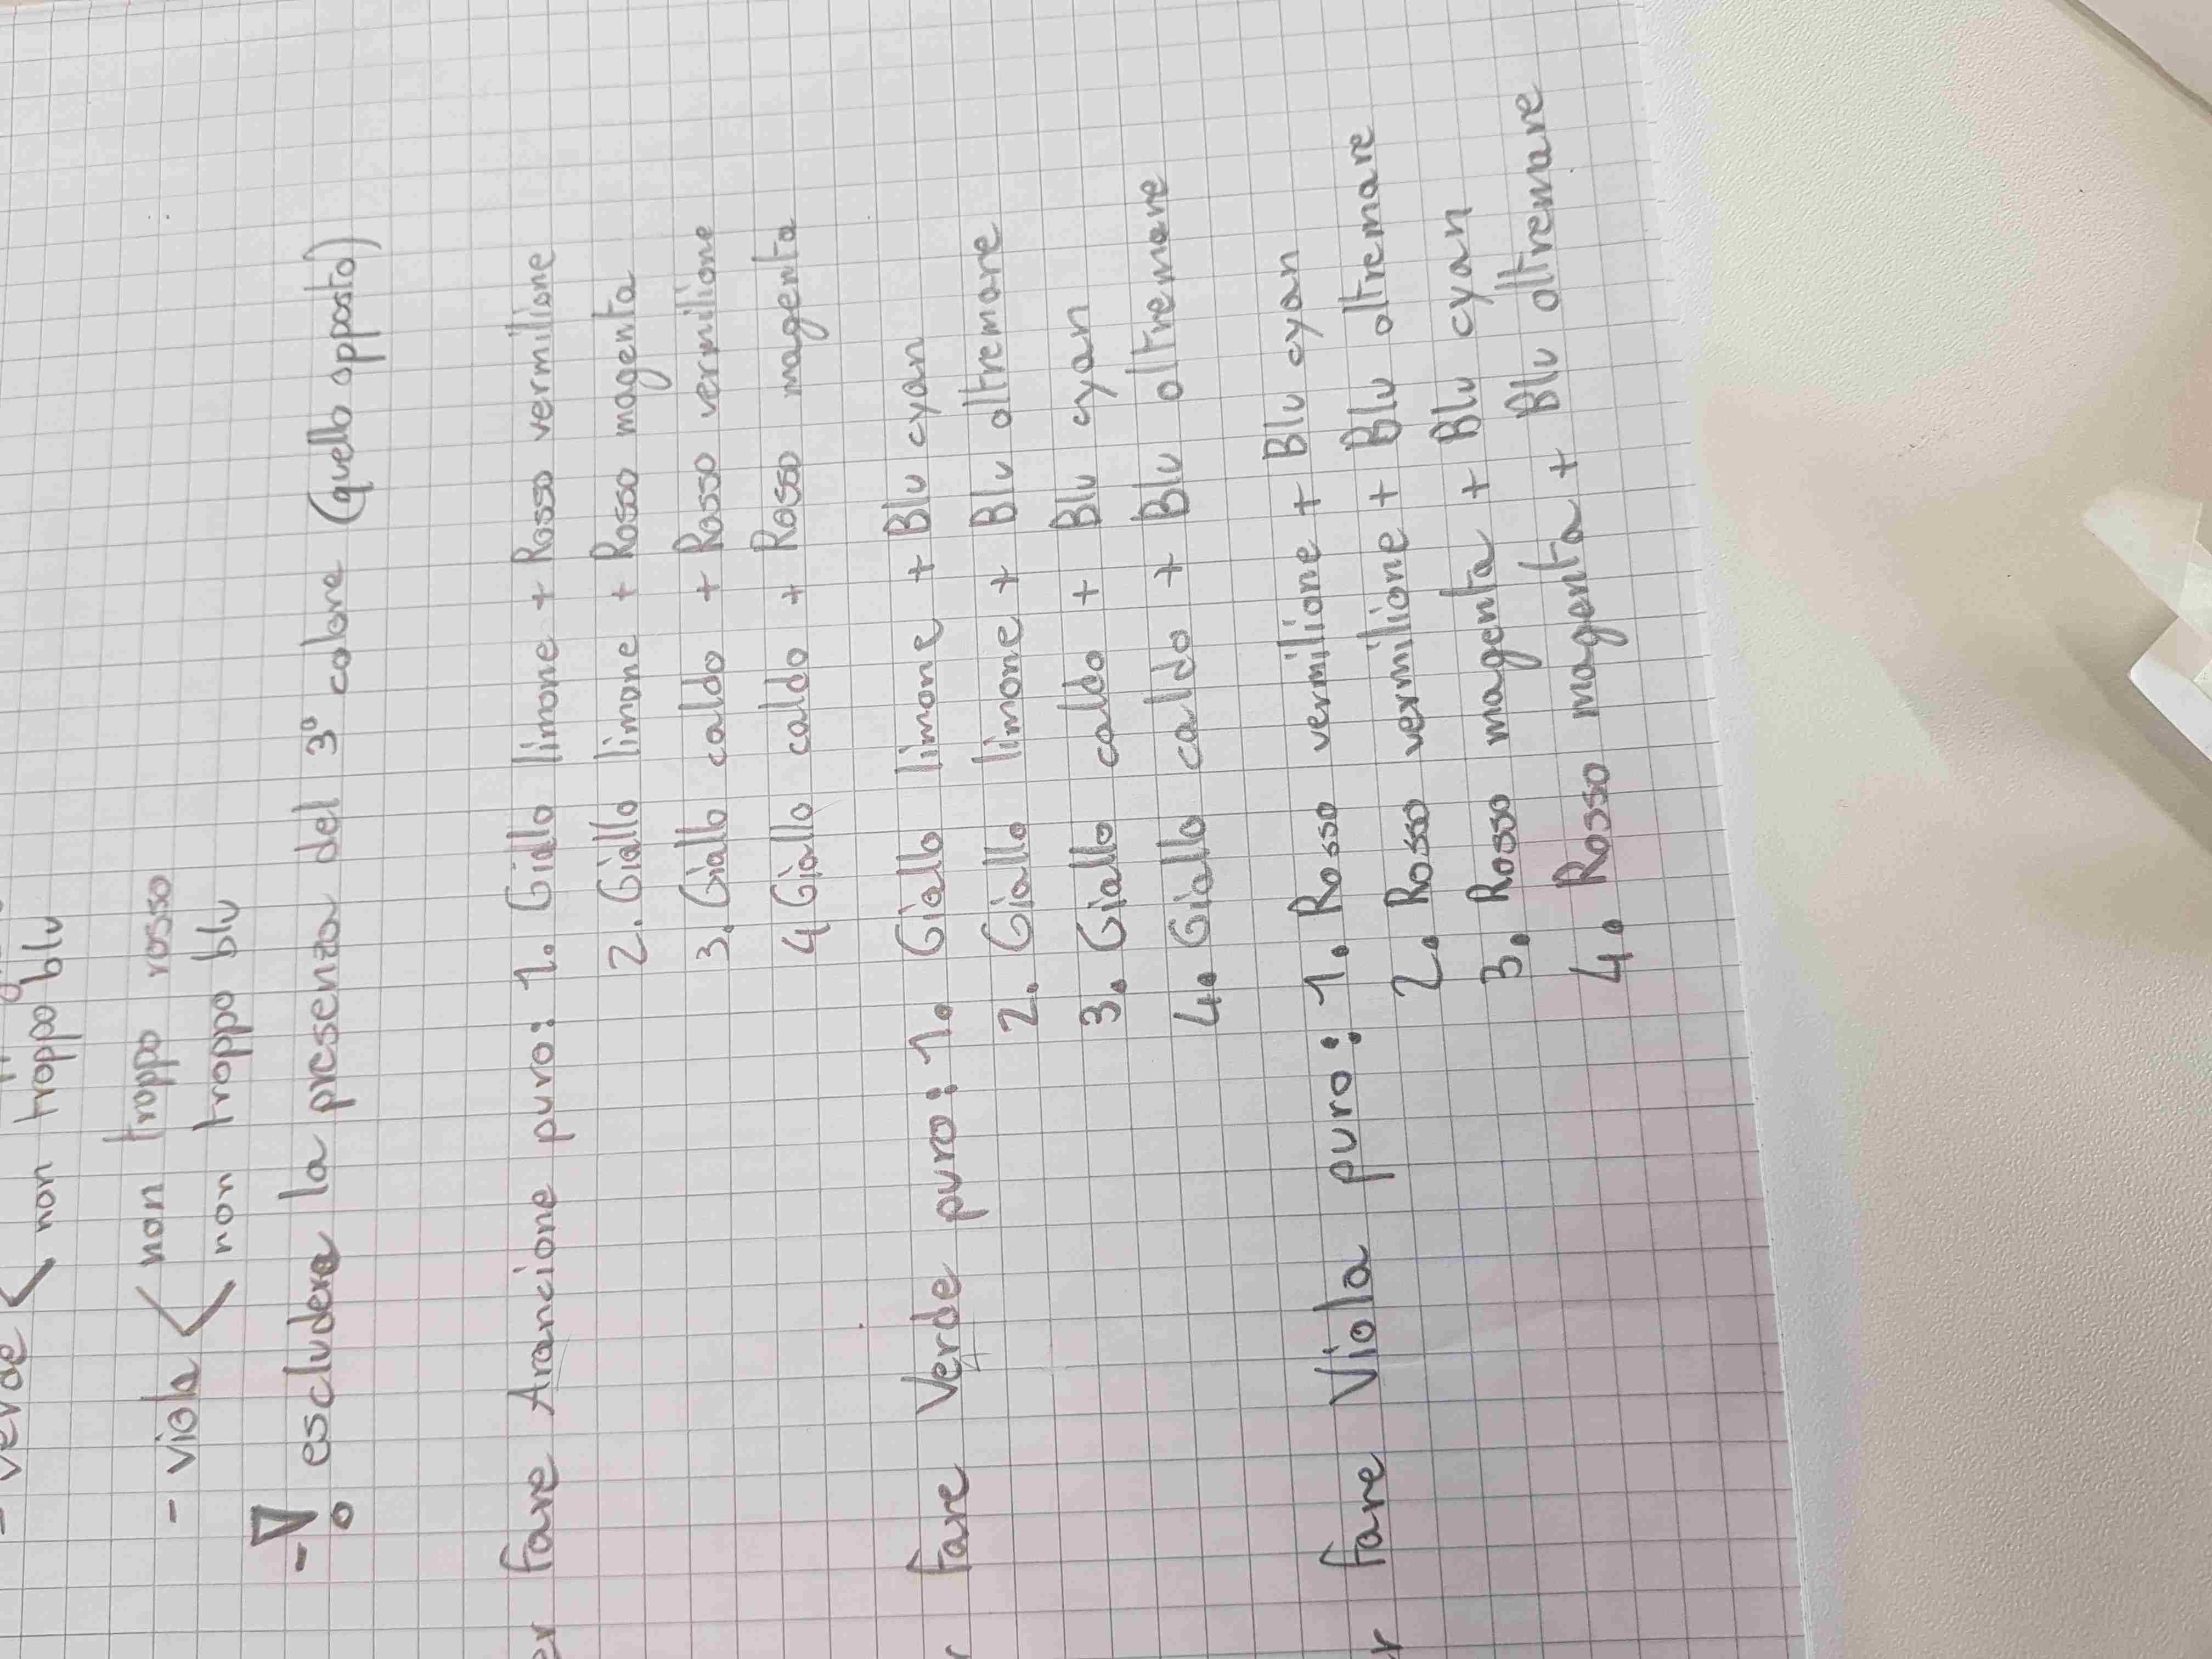 - verde < non troppo blu
- viola < non troppo rosso
non troppo blu
- ! escludere la presenza del 3° colore (quello opposto)
er fare Arancione puro: 1. Giallo limone + Rosso vermilione
2. Giallo limone + Rosso magenta
3. Giallo caldo + Rosso vermilione
4 Giallo caldo + Rosso magenta
r fare Verde puro: 1. Giallo limone + Blu cyan
2. Giallo limone + Blu oltremare
3. Giallo caldo + Blu cyan
4. Giallo caldo + Blu oltremare
r fare Viola puro: 1. Rosso vermilione + Blu cyan
2. Rosso vermilione + Blu oltremare
3. Rosso magenta + Blu cyan
4. Rosso magenta + Blu oltremare